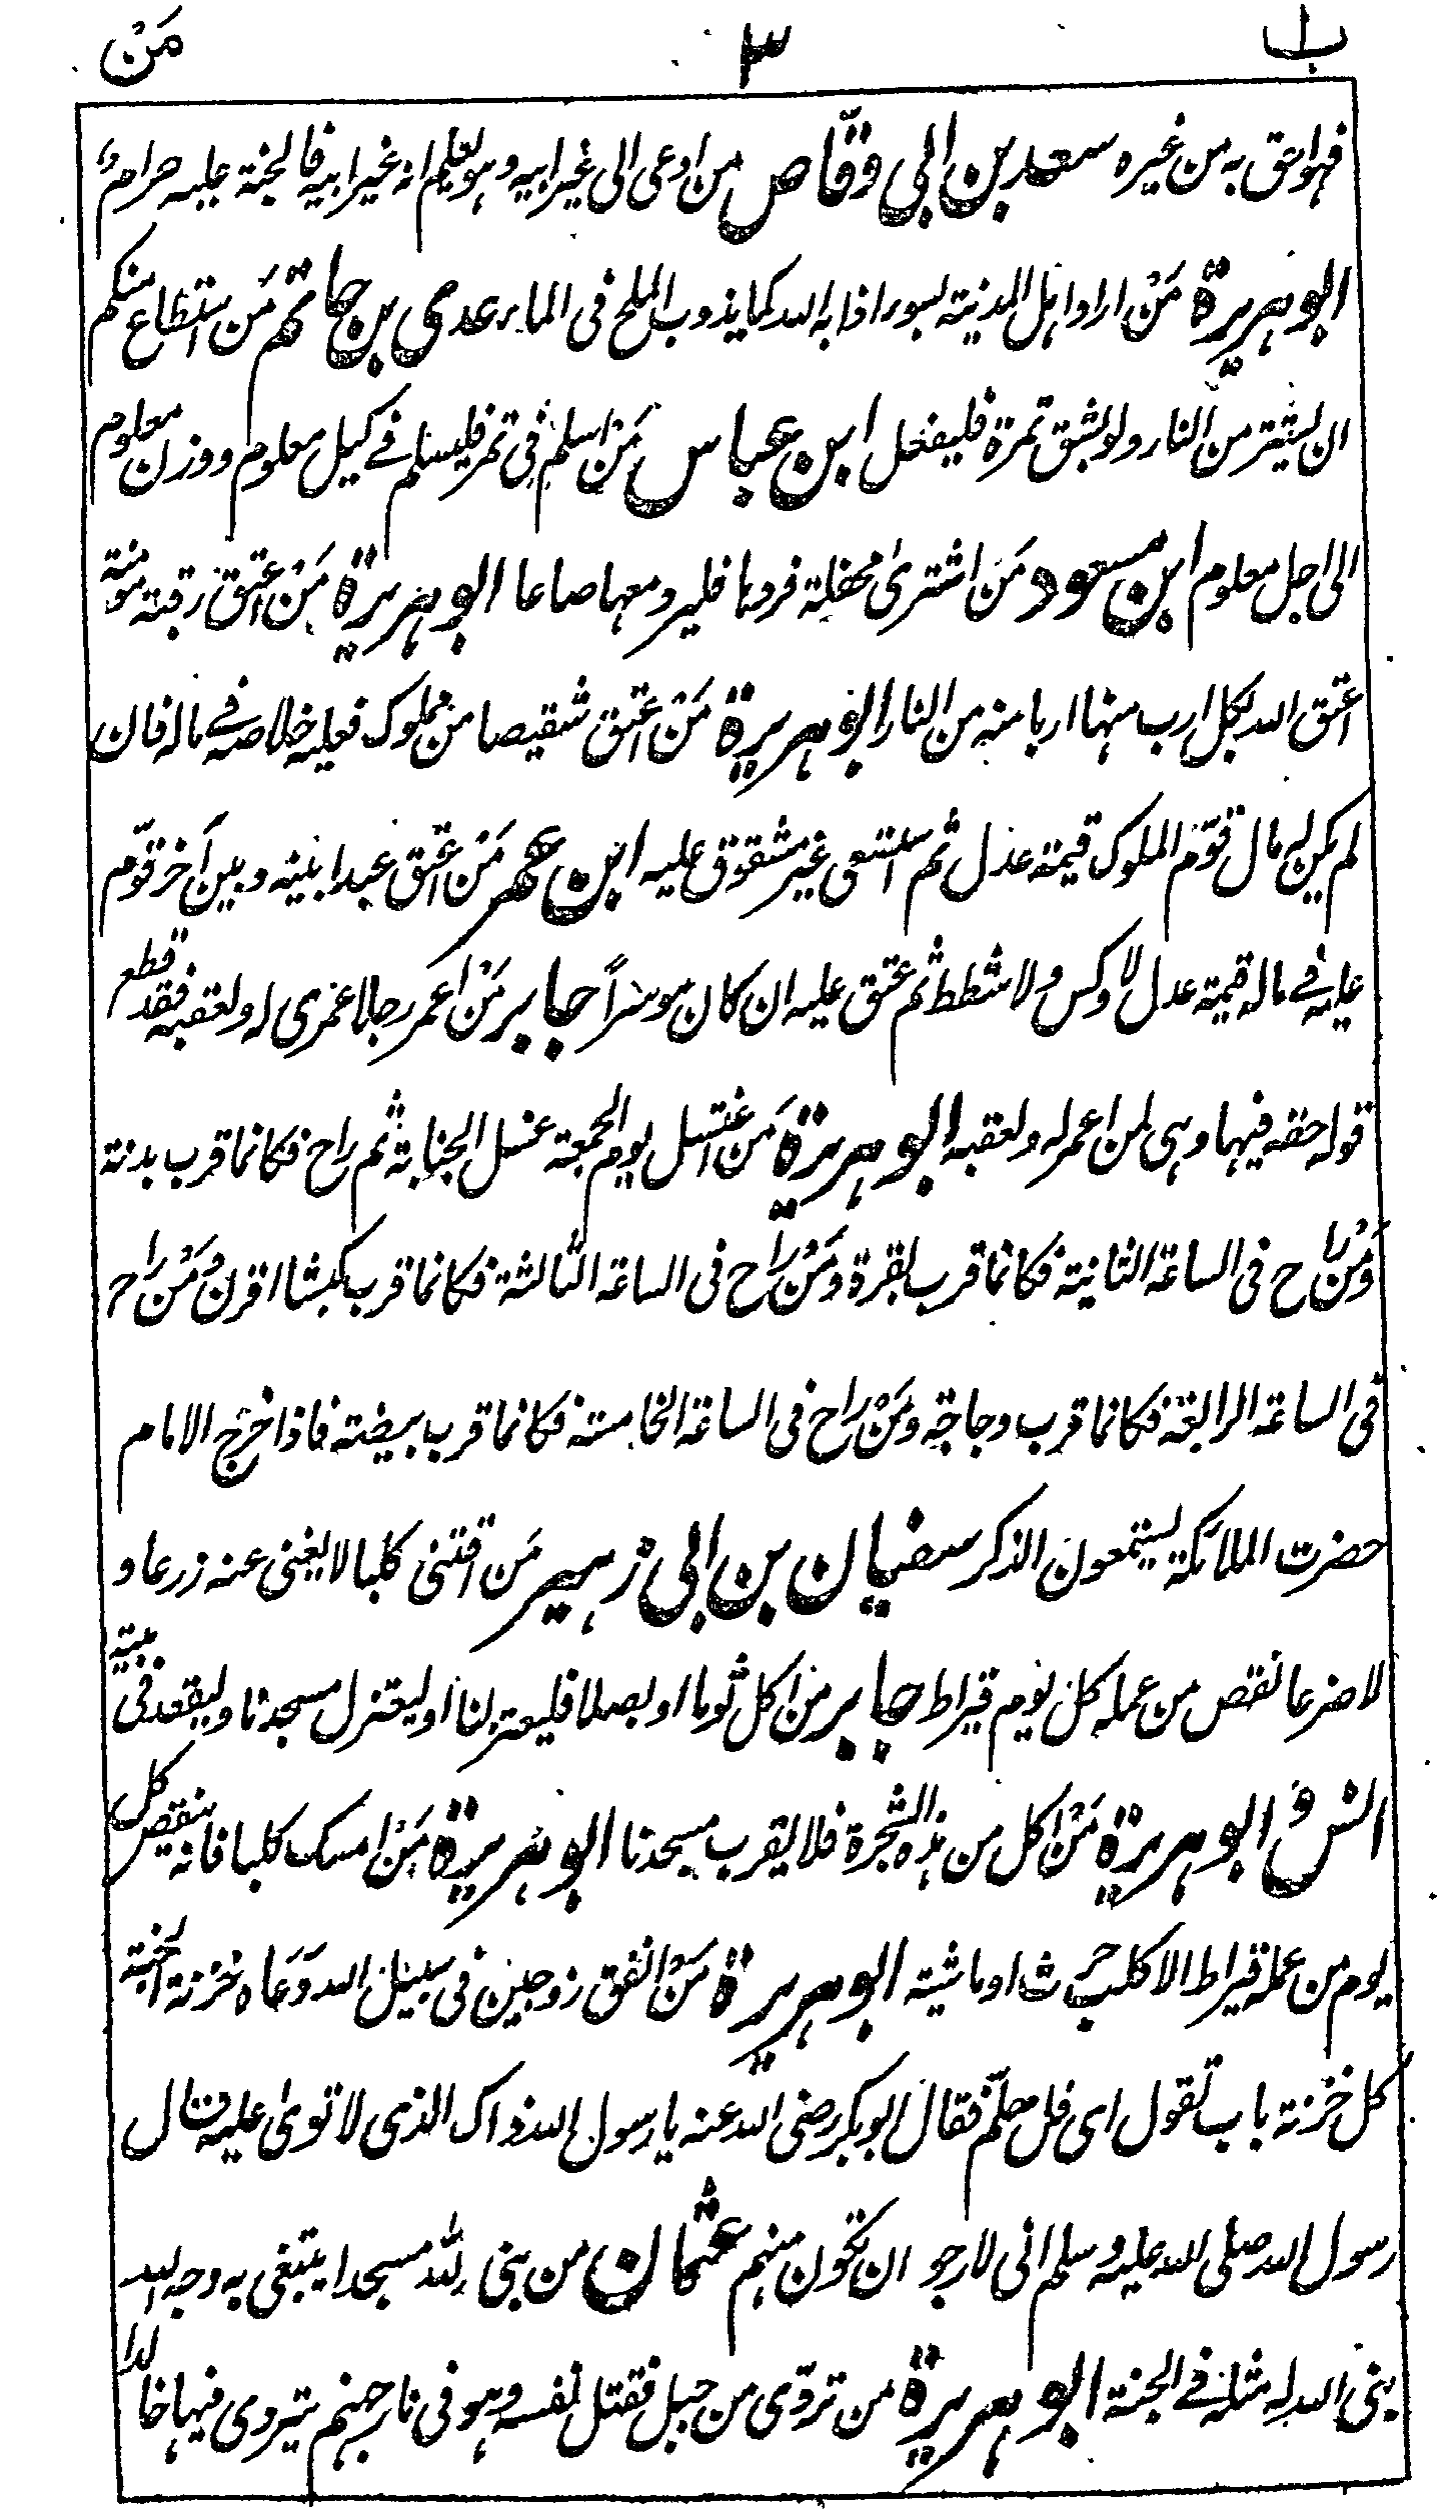 باب ٣ مَنْ
فهو احق به من غيره سعد بن ابی وقّاص من ادعی الی غیر ابیه وهو یعلم انه غیر ابیه فالجنة علیه حرام
ابو هریرة مَنْ اراد اهل المدینة بسوء اذابه الله کما یذوب الملح فی الماء عدی بن حاتم مَن استطاع منکم
ان یستتر من النار ولو بشق تمرة فلیفعل ابن عباس مَن اسلم فی تمر فلیسلم فے کیل معلوم ووزن معلوم
الی اجل معلوم ابن مسعود مَن اشتری محفلة فردها فلیرد معها صاعا ابو هریرة مَنْ اعتق رقبة مؤمنة
اعتق الله بکل ارب منها اربا منه من النار ابو هریرة مَنْ اعتق شقیصا من مملوک فعلیه خلاصه فے ماله فان
لم یکن له مال قوّم المملوک قیمة عدل ثم استسعی غیر مشقوق علیه ابن عمر مَنْ اعتق عبدا بینه وبین آخر قوّم
علیه فے ماله قیمة عدل لا وکس ولا شطط ثم عتق علیه ان کان موسراً جابر مَنْ اعمر رجلا عمری له ولعقبه فقد قطع
قوله حقه فیها وهی لمن اعمر له ولعقبه ابو هریرة مَن اغتسل یوم الجمعة غسل الجنابة ثم راح فکانما قرب بدنة
وَمَنْ راح فی الساعة الثانیة فکانما قرب بقرة ومَنْ راح فی الساعة الثالثة فکانما قرب کبشا اقرن ومَنْ راح
فی الساعة الرابعة فکانما قرب دجاجة ومَنْ راح فی الساعة الخامسة فکانما قرب بیضة فاذا خرج الامام
حضرت الملائکة یستمعون الذکر سفیان بن ابی زهیر مَن اقتنی کلبا لا یغنی عنه زرعا و
لا ضرعا نقص من عمله کل یوم قیراط جابر من اکل ثوما او بصلا فلیعتزلنا او لیعتزل مسجدنا ولیقعد فی بیته
انس و ابو هریرة مَنْ اکل من هذه الشجرة فلا یقرب مسجدنا ابو هریرة مَنْ امسک کلبا فانه ینقص کل
یوم من عمله قیراط الا کلب حرث او ماشیة ابو هریرة مَنْ انفق زوجین فی سبیل الله دَعَاه خزنة الجنة
کل خزنة باب تقول ای فل هلمّ فقال ابو بکر رضی الله عنه یا رسول الله ذاک الذی لا توی علیه قال
رسول الله صلی الله علیه وسلم انی لارجو ان تکون منهم عثمان من بنی لله مسجدا یبتغی به وجه الله
بنی الله له مثله فے الجنة ابو هریرة من تردّی من جبل فقتل نفسه وهو فی نار جهنم یتردی فیها خالدا